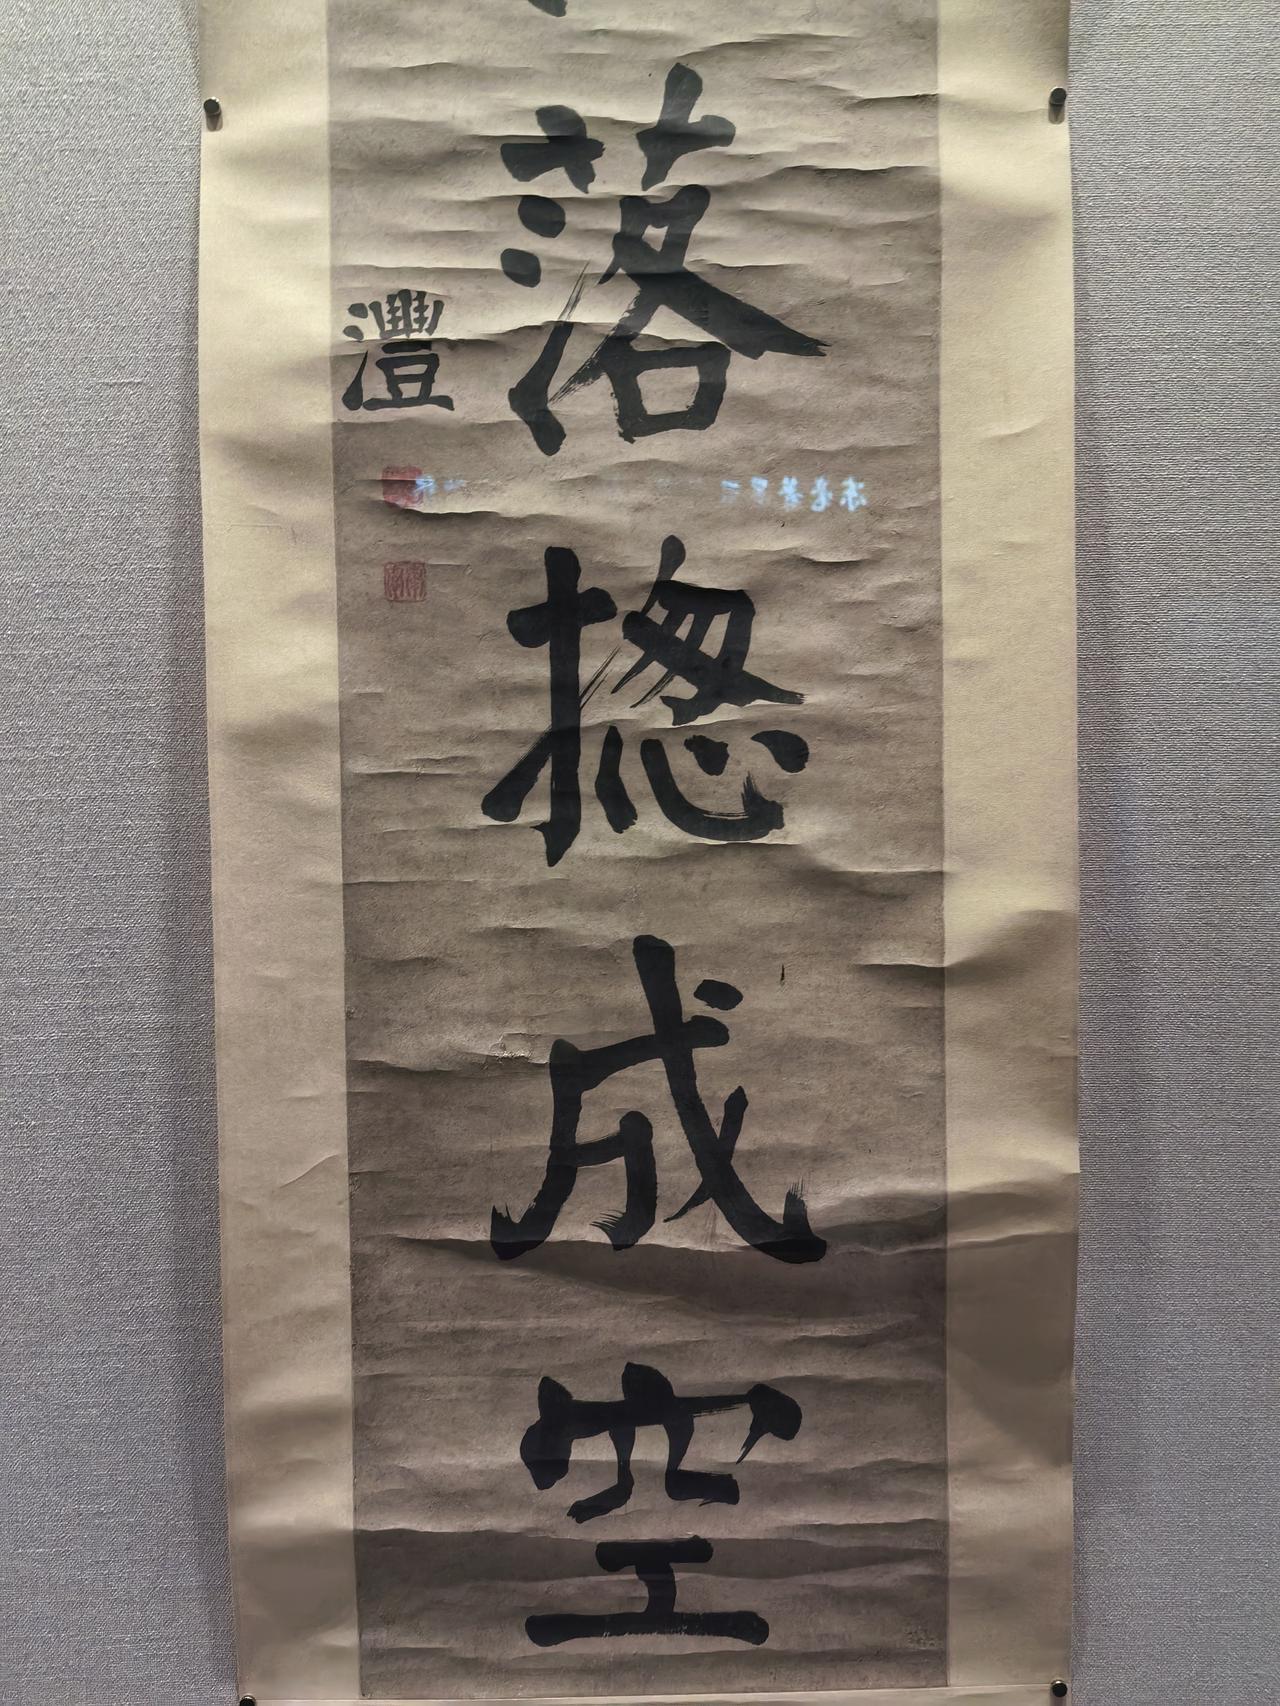 落揔成空
灃